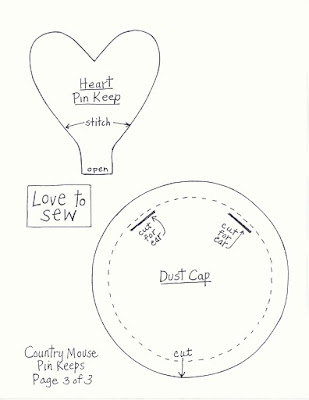 Heart
Pin Keep
stitch
open
Love to
sew
cut
for
ear
cut
for
ear
Dust Cap
cut
Country Mouse
Pin Keeps
Page 3 of 3